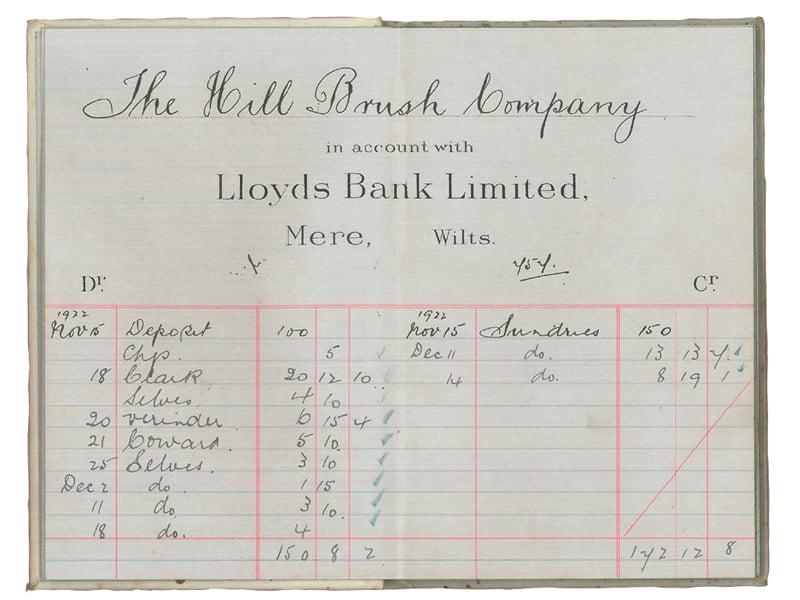 The Hill Brush Company
in account with
Lloyds Bank Limited,
Mere, Wilts.
757.
Dr. Cr.
1922 1922
Nov 15 Deposit 100 Nov 15 Sundries 150
Chq. 5 Dec 11 do. 13 13 7
18 Clark 20 12 10 14 do. 8 19 1
Selves 4 10
20 Verinder 6 15 4
21 Coward. 5 10
25 Selves. 3 10
Dec 2 do 1 15
11 do. 3 10.
18 do. 4
150 8 2 172 12 8